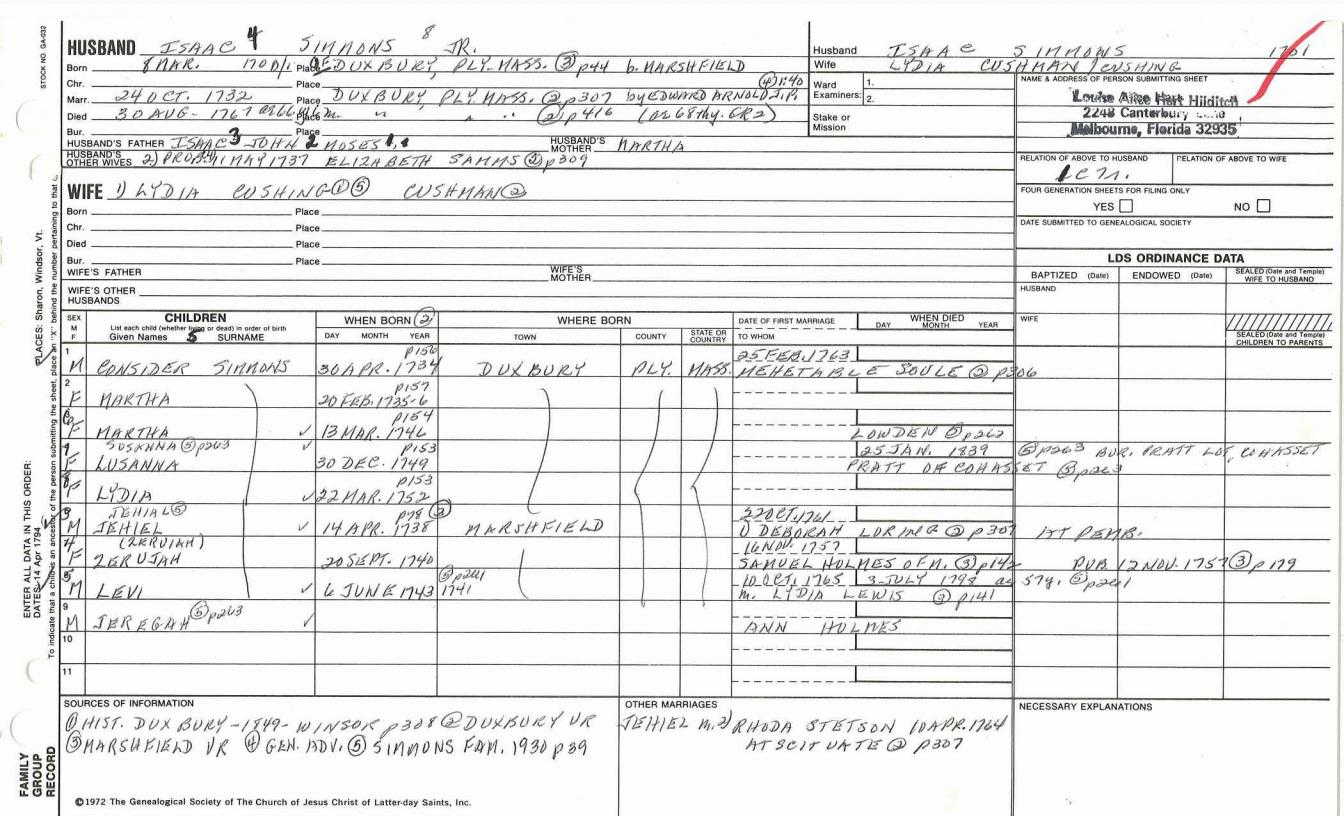 STOCK NO. GA-032
HUSBAND ISAAC 4 SIMMONS 8 JR.
Husband ISAAC SIMMONS 1701
Born 8 MAR. 1700/1 Place OF DUXBURY, PLY. MASS. ③ p44 b. MARSHFIELD
Wife LYDIA CUSHMAN/CUSHING
Chr. Place ④ 11:40
Ward Examiners: 1. 2.
NAME & ADDRESS OF PERSON SUBMITTING SHEET
Louise Alice Hart Hilditch
2248 Canterbury Lane
Melbourne, Florida 32935
Marr. 24 OCT. 1732 Place DUXBURY, PLY. MASS. ② p307 by EDWARD ARNOLD J.P.
Died 30 AUG- 1767 Place " " " ② p416 (ae 68thy. GR2)
Stake or Mission
Bur. Place
HUSBAND'S FATHER ISAAC 3 JOHN 2 MOSES 1,1 HUSBAND'S MOTHER MARTHA
HUSBAND'S OTHER WIVES 2) PROB. 11 MAY 1737 ELIZABETH SAMMS ② p309
RELATION OF ABOVE TO HUSBAND RELATION OF ABOVE TO WIFE
WIFE 1) LYDIA CUSHING ① ⑤ CUSHMAN ②
FOUR GENERATION SHEETS FOR FILING ONLY
YES NO
Born Place
Chr. Place
DATE SUBMITTED TO GENEALOGICAL SOCIETY
Died Place
Bur. Place
LDS ORDINANCE DATA
WIFE'S FATHER WIFE'S MOTHER
BAPTIZED (Date) ENDOWED (Date) SEALED (Date and Temple) WIFE TO HUSBAND
WIFE'S OTHER HUSBANDS
HUSBAND
SEX M F CHILDREN List each child (whether living or dead) in order of birth Given Names 5 SURNAME
WHEN BORN ② DAY MONTH YEAR
WHERE BORN TOWN COUNTY STATE OR COUNTRY
DATE OF FIRST MARRIAGE TO WHOM
WHEN DIED DAY MONTH YEAR
WIFE
SEALED (Date and Temple) CHILDREN TO PARENTS
1 p156 25 FEB. 1763
M CONSIDER SIMMONS 30 APR. 1734 DUXBURY PLY. MASS. MEHETABLE SOULE ② p306
2 p157
F MARTHA 20 FEB. 1735-6
6 p154
F MARTHA ✓ 13 MAR. 1746 LOWDEN ⑤ p262
7 SUSANNA ⑤ p263 ✓ p153 25 JAN. 1839 ⑤ p263 BUR. PRATT LOT, COHASSET
F LUSANNA 30 DEC. 1749 PRATT OF COHASSET ⑤ p263
8 p153
F LYDIA ✓ 22 MAR. 1752
3 JEHIAL ⑤ p78 ② 22 OCT. 1761
M JEHIEL ✓ 14 APR. 1738 MARSHFIELD 1) DEBORAH LORING ② p307 AT PEMB.
4 (ZERUIAH) 16 NOV. 1757
F ZERUJAH 20 SEPT. 1740 SAMUEL HOLMES OF M. ③ p142 PUB 12 NOV. 1757 ③ p179
5 ⑤ p261 10 OCT. 1765 3 JULY 1798 ae 57y. ⑤ p261
M LEVI ✓ 6 JUNE 1743 1741 m. LYDIA LEWIS ② p141
9
M JEREGAH ⑤ p263 ✓ ANN HOLMES
10
11
SOURCES OF INFORMATION
① HIST. DUXBURY-1849- WINSOR p308 ② DUXBURY VR
③ MARSHFIELD VR ④ GEN. ADV. ⑤ SIMMONS FAM. 1930 p39
OTHER MARRIAGES
JEHIEL m. 2) RHODA STETSON 10 APR. 1764
AT SCITUATE ② p307
NECESSARY EXPLANATIONS
©1972 The Genealogical Society of The Church of Jesus Christ of Latter-day Saints, Inc.
FAMILY GROUP RECORD
ENTER ALL DATA IN THIS ORDER:
DATES: 14 Apr 1794
PLACES: Sharon, Windsor, Vt.
To indicate that a child is an ancestor of the person submitting the sheet, place an "X" behind the number pertaining to that